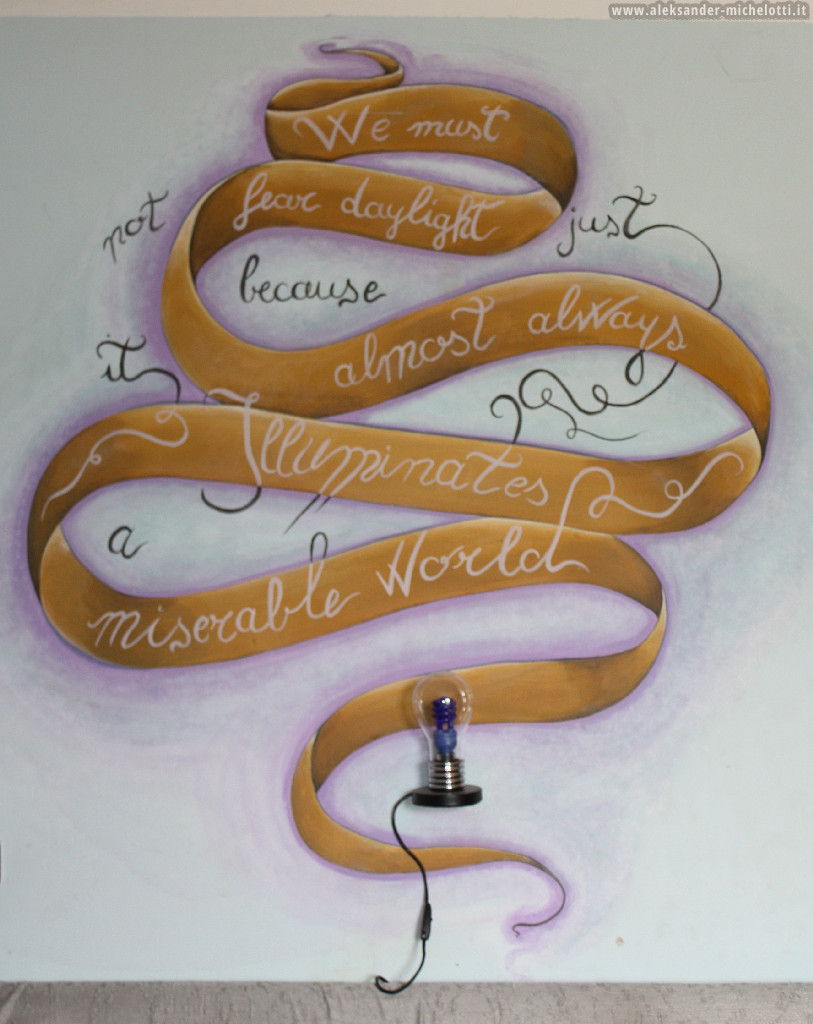 www.aleksander-michelotti.it
We must
not fear daylight just
because
almost always
it
Illuminates
a
miserable World